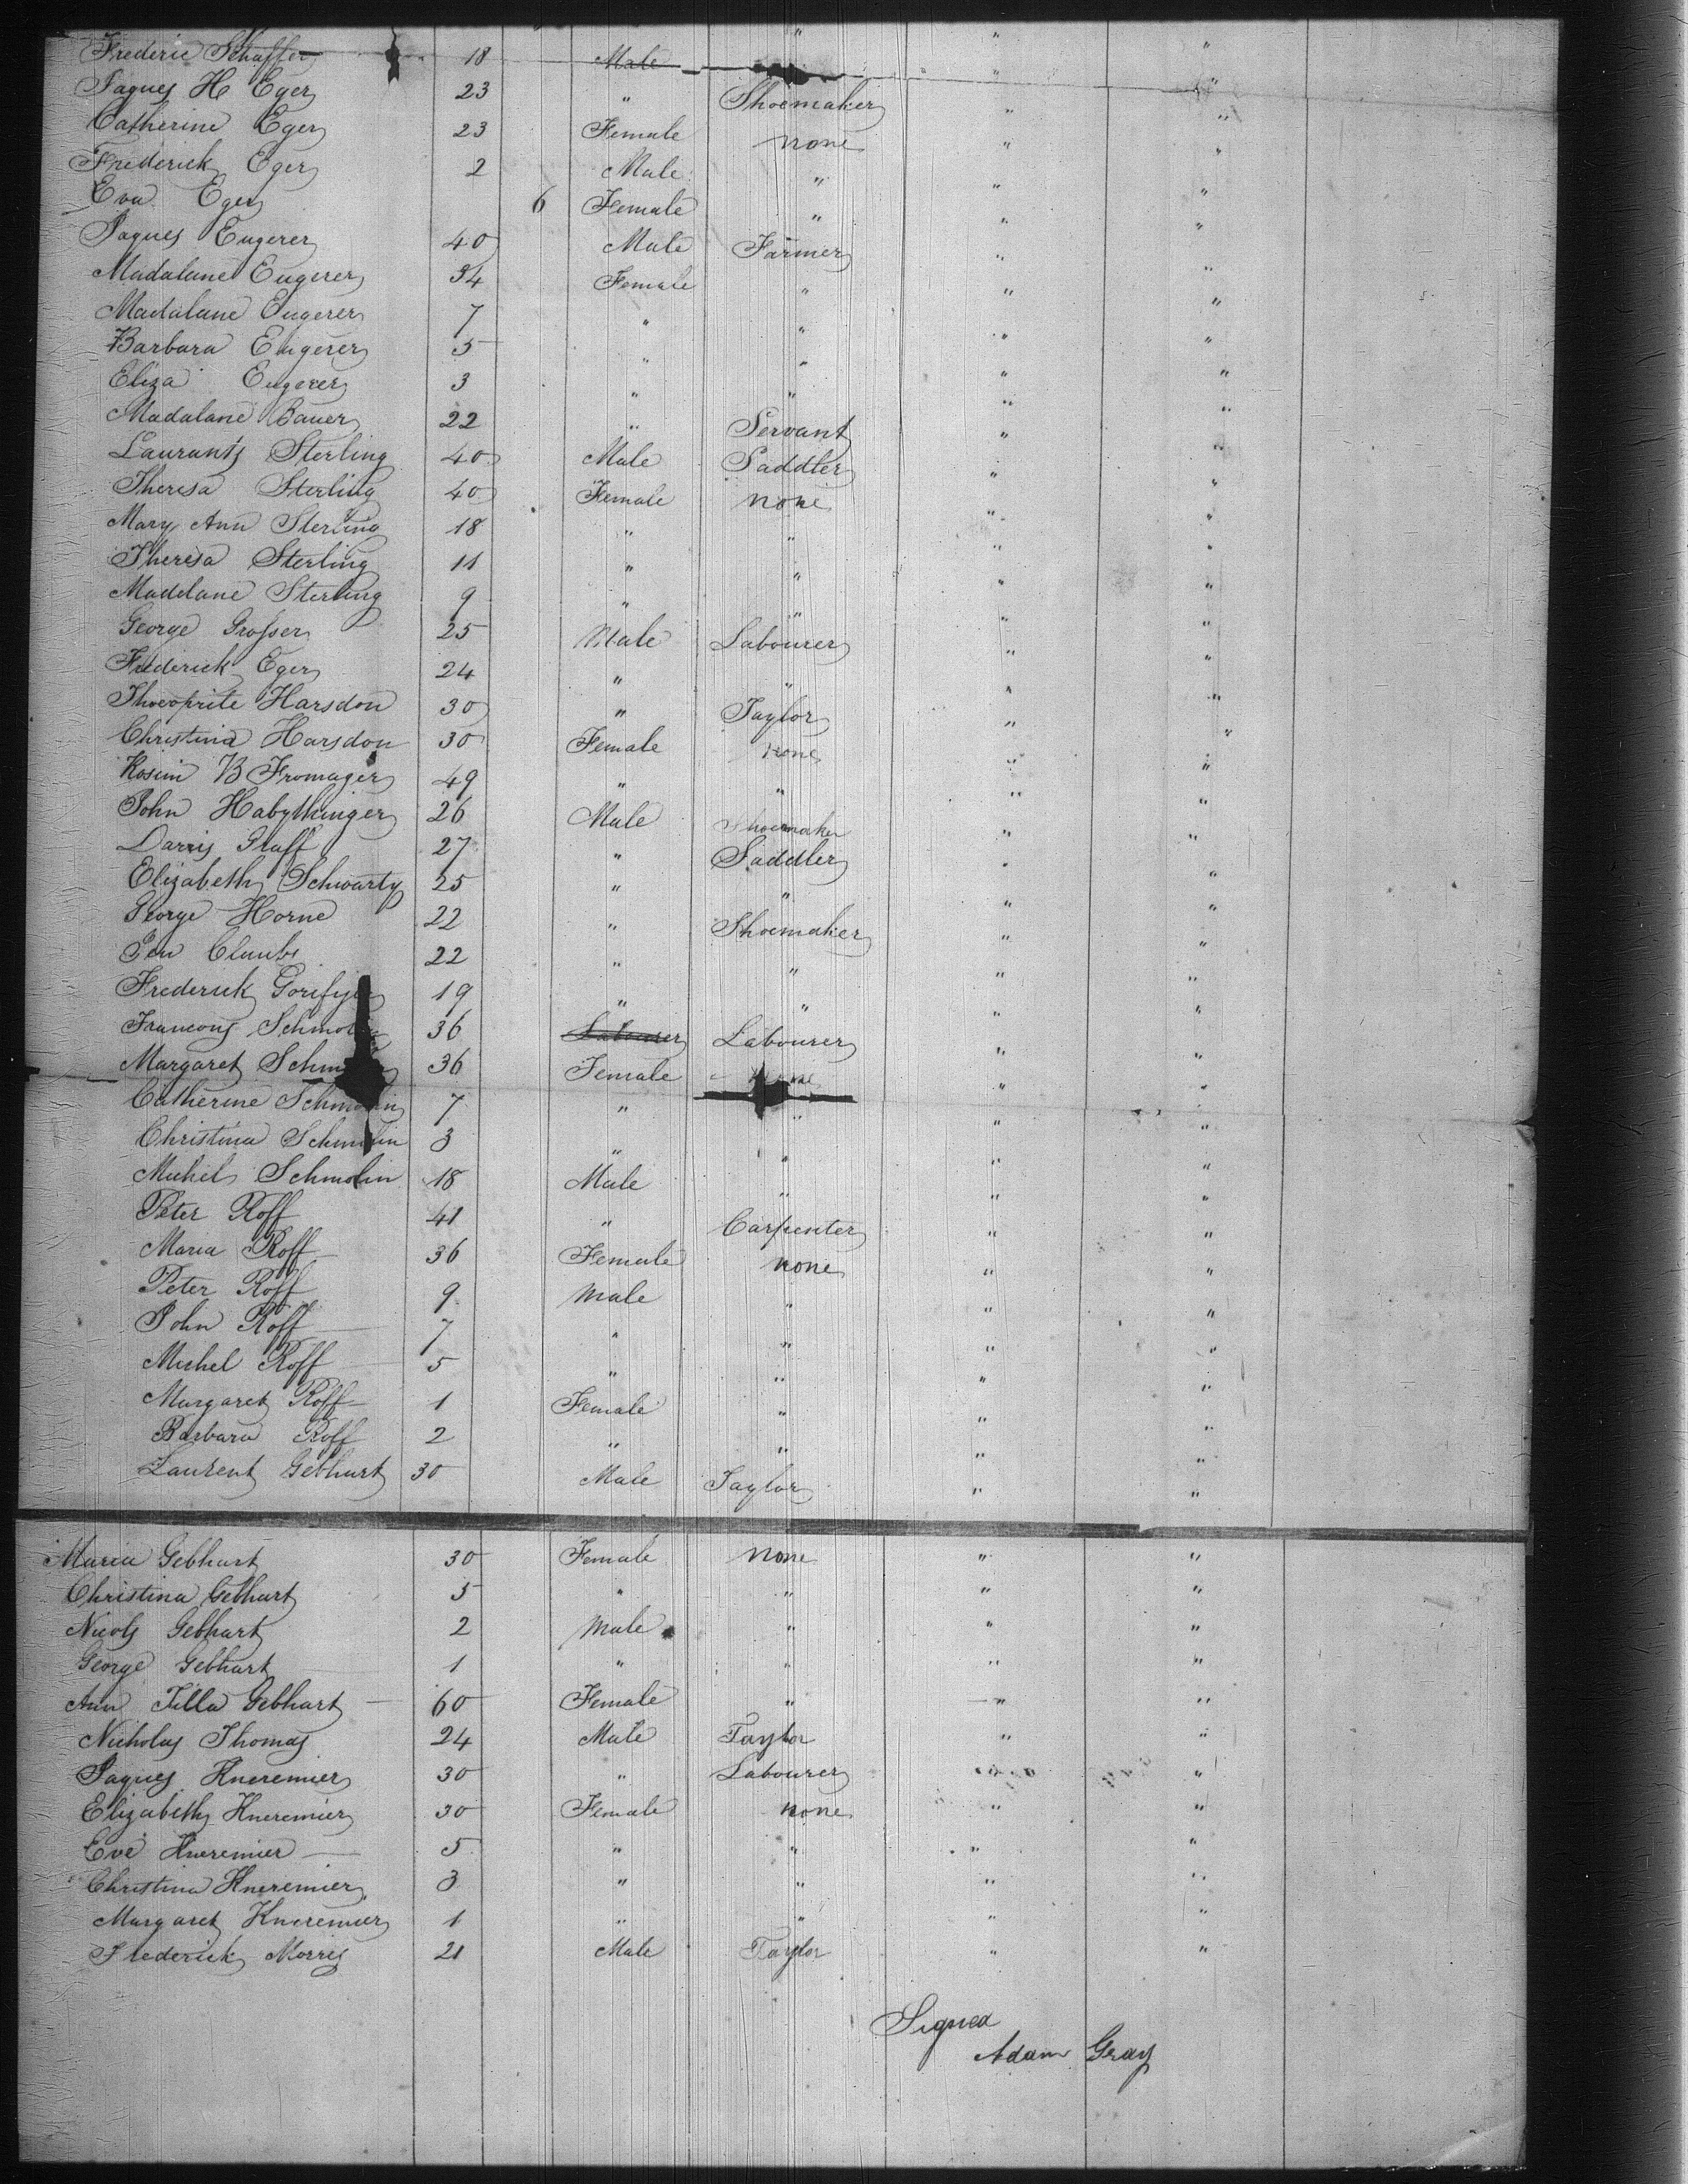 " "
Frederic Schaffer 18 Male "
Jaques H Eger 23 " Shoemaker " "
Catherine Eger 23 Female none " "
Frederick Eger 2 Male " " "
Eva Eger 6 Female " " "
Jaques Eugerer 40 Male Farmer " "
Madalane Eugerer 34 Female " " "
Madalane Eugerer 7 " " " "
Barbara Eugerer 5 " " " "
Eliza Eugerer 3 " " " "
Madalane Bauer 22 " Servant " "
Laurants Sterling 40 Male Saddler " "
Theresa Sterling 40 Female none " "
Mary Ann Sterling 18 " " " "
Theresa Sterling 11 " " " "
Madelane Sterling 9 " " " "
George Grosser 25 Male Labourer " "
Frederick Eger 24 " " " "
Harsdon 30 " Taylor " "
Christina Harsdon 30 Female none " "
Rosim B Fromager 49 " " " "
John Habythinger 26 Male Shoemaker " "
Darris Graff 27 " Saddler " "
Elizabeth Schwartz 25 " " " "
George Horne 22 " Shoemaker " "
22 " " " "
Frederick 19 " " " "
Francons Schmolin 36 Labourer Labourer " "
Margaret Schmolin 36 Female none " "
Catherine Schmolin 7 " " " "
Christina Schmolin 3 " " " "
Michel Schmolin 18 Male " " "
Peter Roff 41 " Carpenter " "
Maria Roff 36 Female none " "
Peter Roff 9 Male " " "
John Roff 7 " " " "
Michel Roff 5 " " " "
Margaret Roff 1 Female " " "
Barbara Roff 2 " " " "
Laurent Gebhart 30 Male Taylor " "
Maria Gebhart 30 Female none " "
Christina Gebhart 5 " " " "
Nicols Gebhart 2 Male " " "
George Gebhart 1 " " " "
Ann Tilla Gebhart 60 Female " " "
Nicholas Thomas 24 Male Taylor " "
Jaques Kneremier 30 " Labourer " "
Elizabeth Kneremier 30 Female none " "
Eve Kneremier 5 " " " "
Christina Kneremier 3 " " " "
Margaret Kneremier 1 " " " "
Frederick Morris 21 Male Taylor " "
Signed
Adam Gray